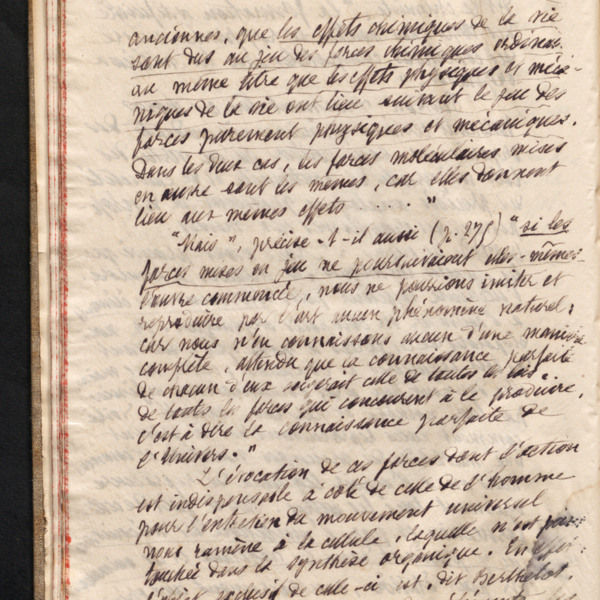 anciennes, que les effets chimiques de la vie
sont dus au jeu des forces chimiques ordinai-
au même titre que les effets physiques et méca-
niques de la vie ont lieu suivant le jeu des
forces purement physiques et mécaniques.
Dans les deux cas, les forces moléculaires mises
en œuvre sont les mêmes, car elles donnent
lieu aux mêmes effets .... "
"Mais", précise-t-il aussi (p. 275) "si les
forces mises en jeu ne poursuivaient elles-mêmes
l'œuvre commencée, nous ne pourrions imiter et
reproduire par l'art aucun phénomène naturel;
car nous n'en connaissons aucun d'une manière
complète, attendu que la connaissance parfaite
de chacun d'eux exigerait celle de toutes les lois,
de toutes les forces qui concourent à le produire,
c'est à dire la connaissance parfaite de
l'Univers."
L'évocation de ces forces dont l'action
est indispensable à côté de celle de l'homme
pour l'entretien du mouvement universel
nous ramène à la cellule, laquelle n'est pas
touchée dans la synthèse organique. En effet
de celle-ci est, dit Berthelot,